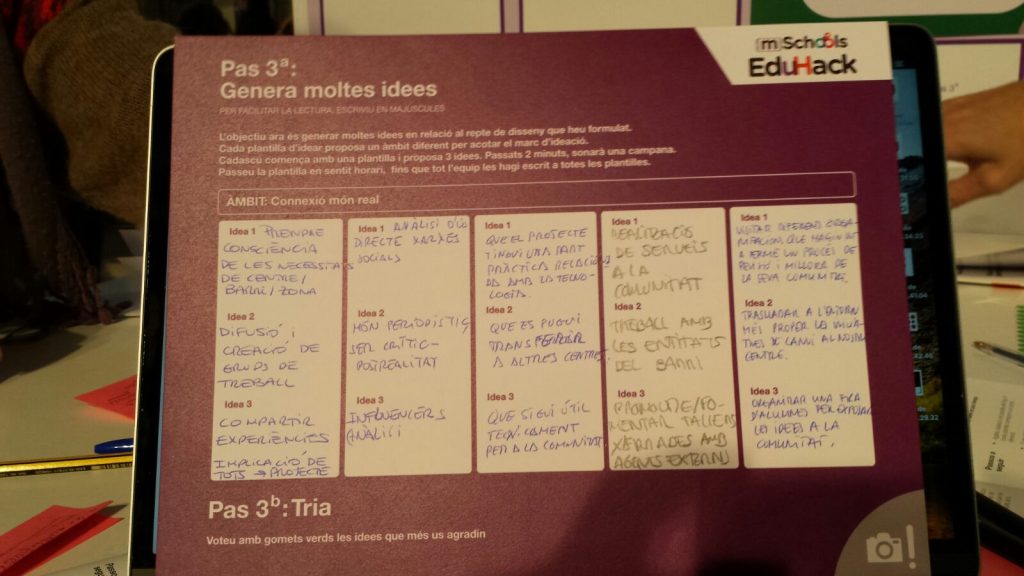 Pas 3ª:
Genera moltes idees
PER FACILITAR LA LECTURA, ESCRIVIU EN MAJÚSCULES
L'objectiu ara és generar moltes idees en relació al repte de disseny que heu formulat.
Cada plantilla d'idear proposa un àmbit diferent per acotar el marc d'ideació.
Cadascú comença amb una plantilla i proposa 3 idees. Passats 2 minuts, sonarà una campana.
Passeu la plantilla en sentit horari, fins que tot l'equip les hagi escrit a totes les plantilles.
(m)Schools
EduHack
ÀMBIT: Connexió món real
Idea 1 PRENDRE
CONSCIÈNCIA
DE LES NECESSITATS
DE CENTRE/
BARRI/ZONA
Idea 2
DIFUSIÓ I
CREACIÓ DE
GRUPS DE
TREBALL
Idea 3
COMPARTIR
EXPERIÈNCIES
IMPLICACIÓ DE
TOTS → PROJECTE
Idea 1 ANÀLISI D'ÚS
DIRECTE XARXES
SOCIALS
Idea 2
MÓN PERIODÍSTIC,
SER CRÍTIC-
POSTREALITAT
Idea 3
INFLUENCERS
ANÀLISI
Idea 1
QUE EL PROJECTE
TINGUI UNA PART
PRÀCTICA RELACIONA
DA AMB LA TECNO-
LOGIA.
Idea 2
QUE ES PUGUI
TRANSFERIR
A ALTRES CENTRES.
Idea 3
QUE SIGUI ÚTIL
TECNICAMENT
PER A LA COMUNITAT
Idea 1
REALITZACIÓ
DE SERVEIS
A LA
COMUNITAT
Idea 2
TREBALL AMB
LES ENTITATS
DEL BARRI
Idea 3
PROMOURE/FO-
MENTAR TALLERS
XERRADES AMB
AGENTS EXTERNS
Idea 1
VISITAR DIFERENTS ORGA-
NITZACIONS QUE HAGIN DUT
A TERME UN PROCÉS DE
REVISIÓ I MILLORA DE
LA SEVA COMUNITAT.
Idea 2
TRASLLADAR A L'ENTORN
MÉS PROPER LES
DE CANVI AL NOSTRE
CENTRE.
Idea 3
ORGANITZAR UNA FIRA
D'ALUMNES PER EXPOSAR
LES IDEES A LA
COMUNITAT.
Pas 3ᵇ: Tria
Voteu amb gomets verds les idees que més us agradin